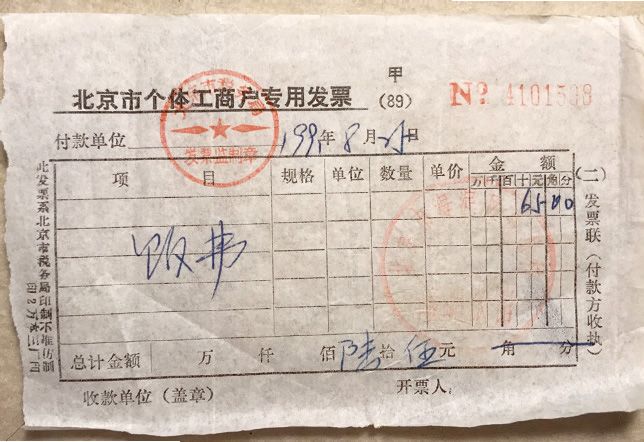 甲
北京市个体工商户专用发票 (89) № 4101598
付款单位 1991年8月25日
项目 规格 单位 数量 单价 金额
万 千 百 十 元 角 分
饭费 65 00
总计金额 万 仟 佰 陆拾 伍元 角 分
收款单位（盖章） 开票人
(二) 发票联（付款方收执）
此发票系北京市税务局印制不准仿制
发票监制章